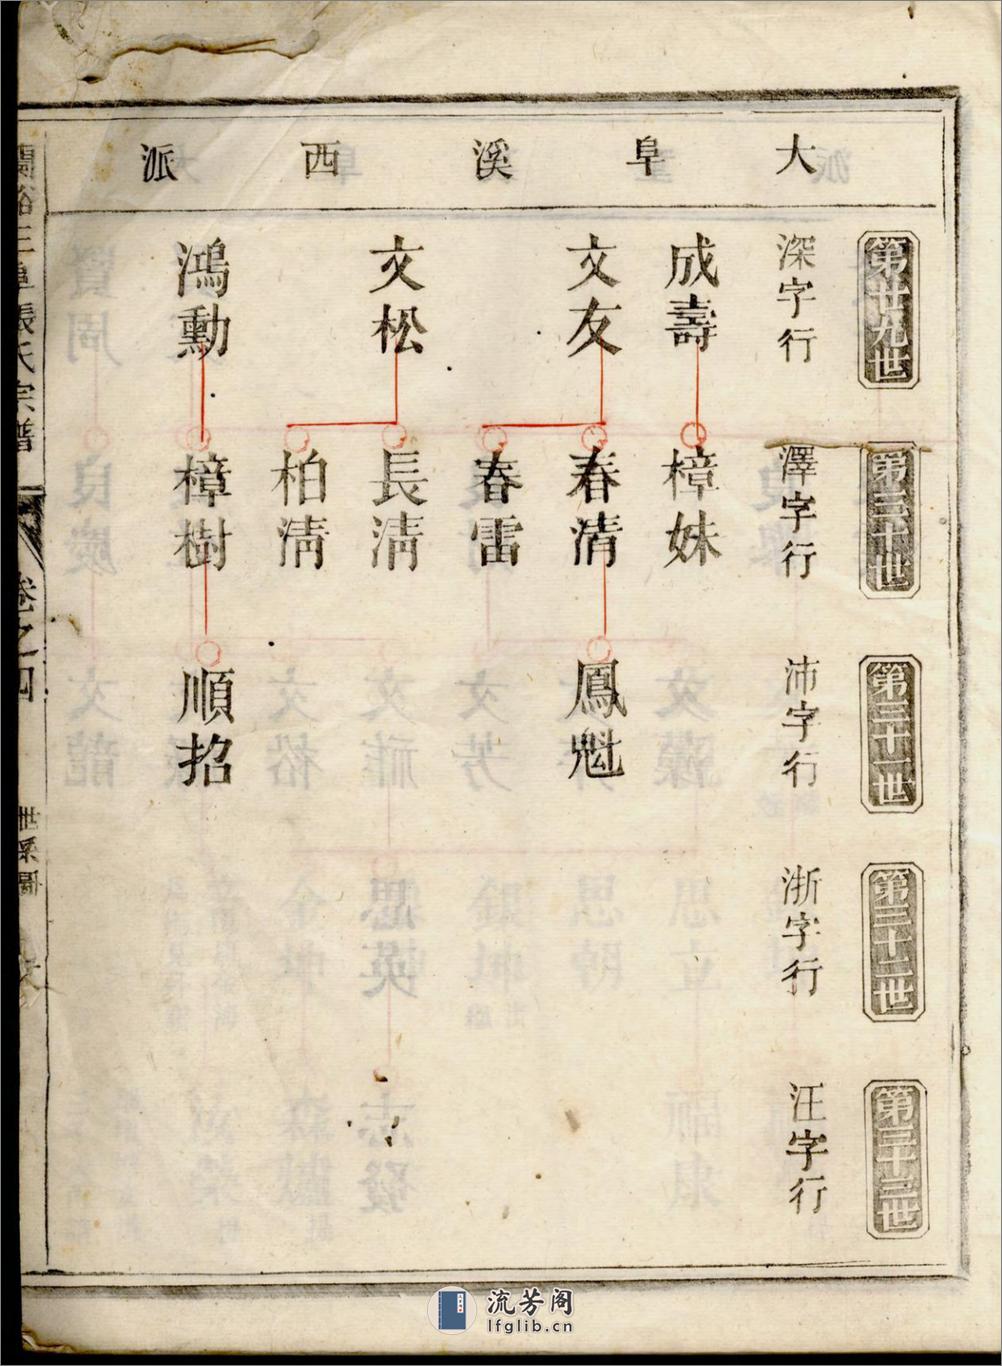 大阜溪西派
第廿九世
深字行
成壽
文友
文松
鴻勳
第三十世
澤字行
樟妹
春清
春雷
長清
柏清
樟樹
第三十一世
沛字行
鳳魁
順招
第三十二世
浙字行
第三十三世
汪字行
張氏宗譜
卷之四
世系圖
流芳阁
lfglib.cn